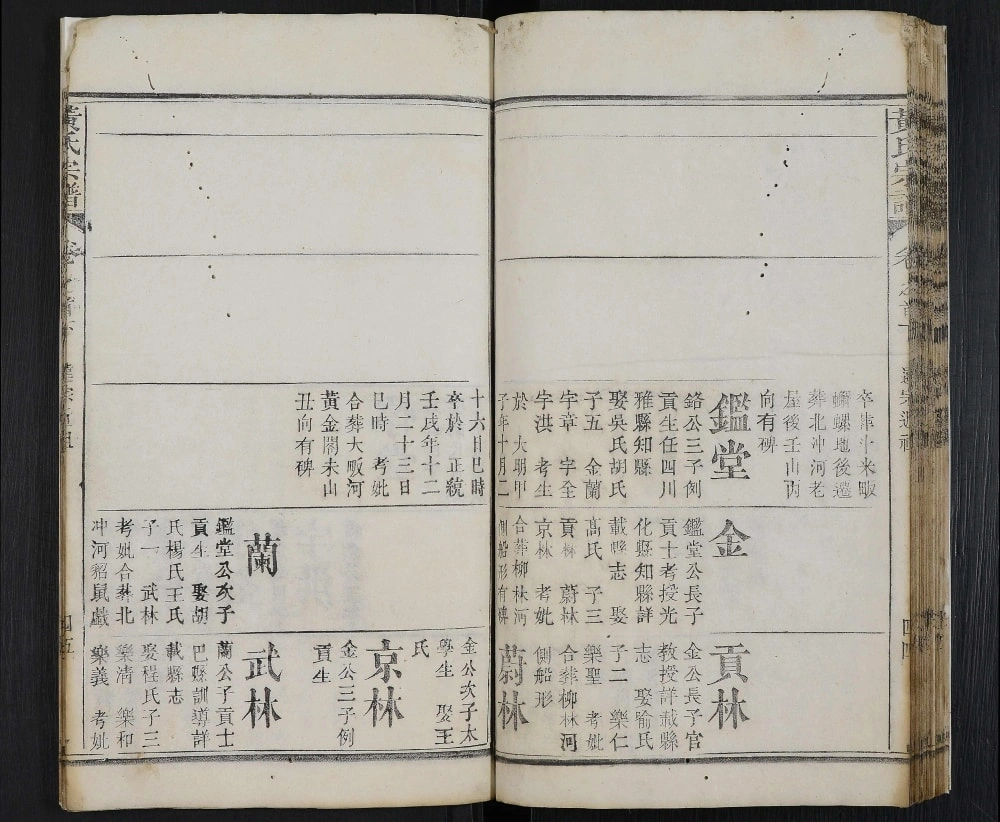 黃氏宗譜
卷之首下
四四
卒葬斗米畈
螄螺地後遷
葬北冲河老
屋後壬山丙
向有碑
鑑堂
鉻公三子例
貢生任四川
雅縣知縣
娶吳氏胡氏
子五 金蘭
字章 字全
字洪 考生
於 大明甲
子年十月二
金
鑑堂公長子
貢士考授光
化縣知縣詳
載縣志 娶
髙氏 子三
貢林 蔚林
京林 考妣
合葬柳林河
側船形有碑
貢林
金公長子官
教授詳載縣
志 娶喻氏
子二 樂仁
樂聖 考妣
合葬柳林河
側船形
蔚林
十六日巳時
卒於 正統
壬戌年十二
月二十三日
巳時 考妣
合葬大畈河
黃金閣未山
丑向有碑
蘭
鑑堂公次子
貢生 娶胡
氏楊氏王氏
子一 武林
考妣合葬北
冲河貂鼠戲
金公次子太
學生 娶王
氏
京林
金公三子例
貢生
武林
蘭公子貢士
巴縣訓導詳
載縣志
娶程氏子三
樂清 樂和
樂義 考妣
黃氏宗譜
四五